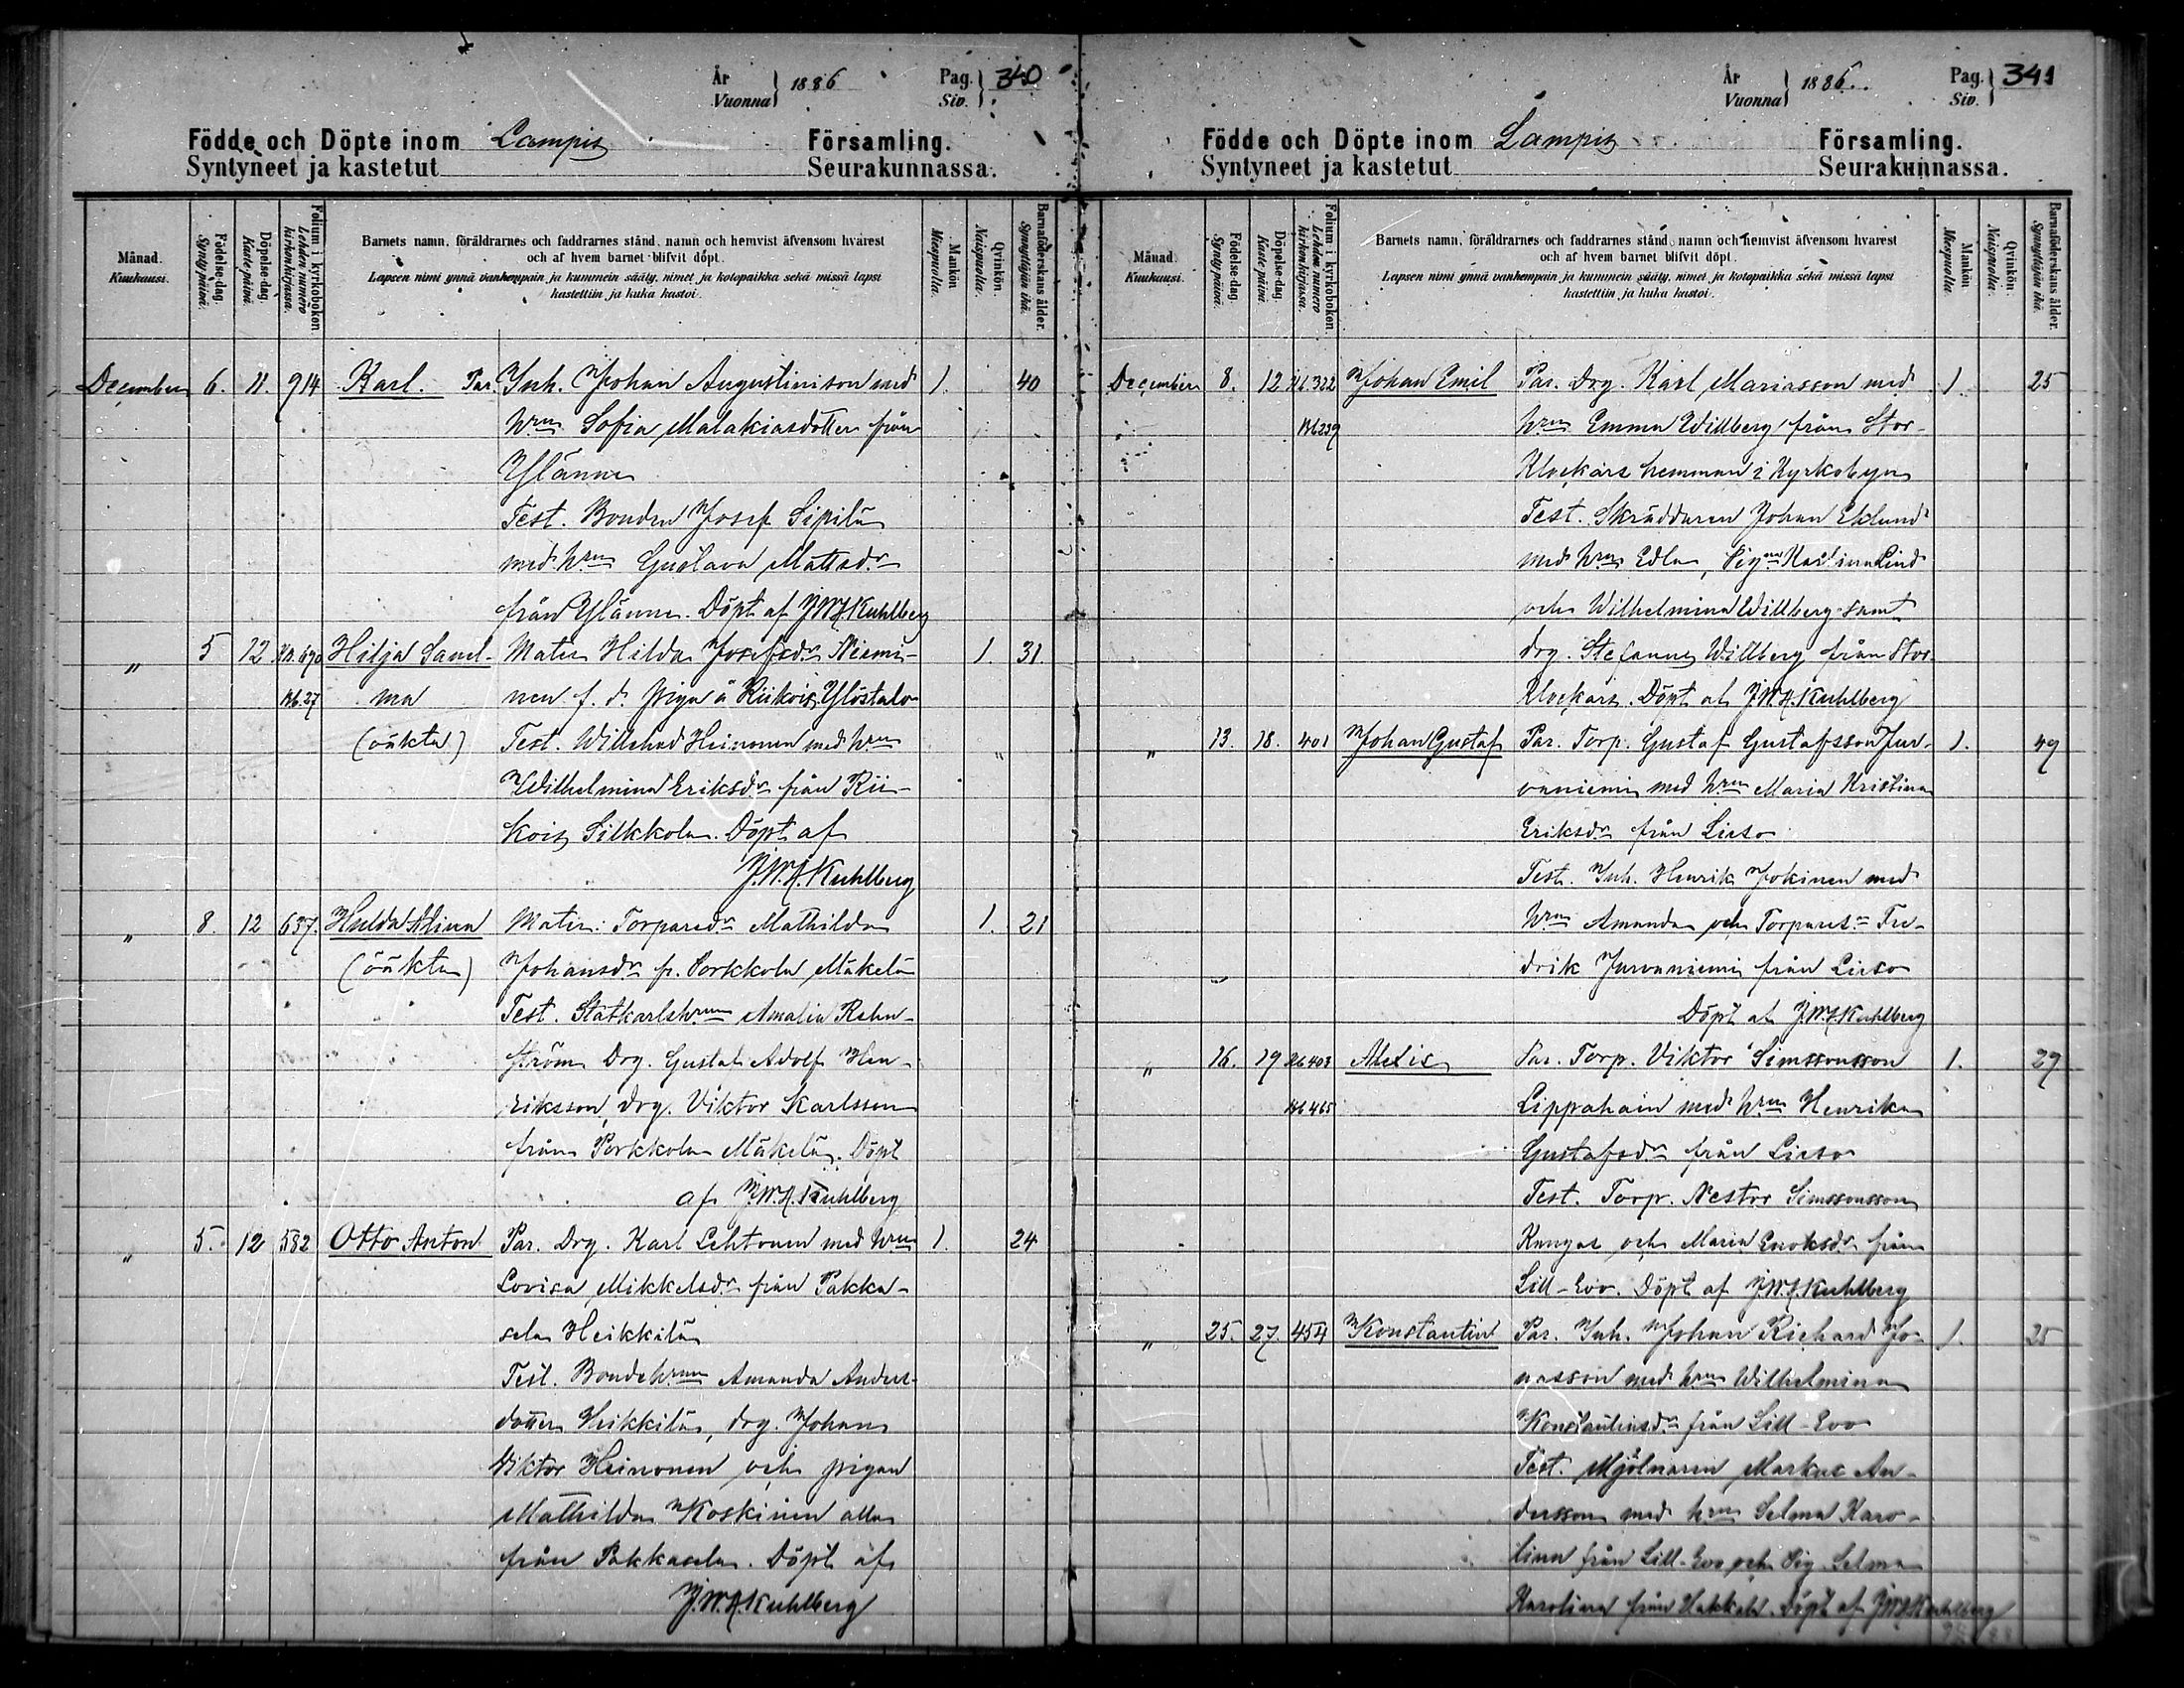 År
Vuonna } 1886
Pag.
Siv. } 340
Födde och Döpte inom Lampis Församling.
Syntyneet ja kastetut Seurakunnassa.
Månad.
Kuukausi.
Födelse-dag.
Syntypäivä.
Döpelse-dag.
Kastepäivä.
Folium i kyrkobokon.
Lehden numero kirkonkirjassa.
Barnets namn, föräldrarnes och faddrarnes stånd, namn och hemvist äfvensom hvarest
och af hvem barnet blifvit döpt.
Lapsen nimi ynnä vanhempain ja kummein sääty, nimet ja kotopaikka sekä missä lapsi
kastettiin ja kuka kastoi.
Mankön.
Miespuolia.
Qvinkön.
Naispuolia.
Barnaföderskans ålder.
Synnyttäjän ikä.
December 6. 11. 914 Karl. Par. Inh. Johan Augustinsson med 1. 40
hrun Sofia Malakiasdotter från
Ylänne
Test. Bonden Josef Sipilä
med hrun Gustava Mattsdr
från Ylänne. Döpt af J.W.A. Kuhlberg
" 5 12 690 Hilja Sanel- Mater Hilda Josefsdr Niemi- 1. 31.
Nb. 27 ma nen f. d. piga å Riikois Ylöstalo
(oäkta) Test. Willehad Heinonen med hrun
Wilhelmina Eriksdr från Rii-
kois Silkkola. Döpt af
J.W.A. Kuhlberg
" 8. 12 637. Hulda Alina Mater: Torparedr Mathilda 1. 21
(oäkta) Johansdr fr. Porkkola Mäkelä
Test. Statkarlshrun Amalia Rehn-
ström Drg. Gustaf Adolf Hen-
riksson, drg. Viktor Karlsson
från Porkkola Mäkelä. Döpt
af J.W.A. Kuhlberg
" 5. 12 582 Otto Anton Par. Drg. Karl Lehtonen med hrun 1. 24
Lovisa Mikkelsdr från Pakka-
sela Heikkilä
Test. Bondehrun Amanda Anders-
dotter Heikkilä, drg. Johan
Viktor Heinonen och pigan
Mathilda Koskinen alla
från Pakkasela. Döpt af
J.W.A. Kuhlberg
År
Vuonna } 1886.
Pag.
Siv. } 341
Födde och Döpte inom Lampis Församling.
Syntyneet ja kastetut Seurakunnassa.
Månad.
Kuukausi.
Födelse-dag.
Syntypäivä.
Döpelse-dag.
Kastepäivä.
Folium i kyrkobokon.
Lehden numero kirkonkirjassa.
Barnets namn, föräldrarnes och faddrarnes stånd, namn och hemvist äfvensom hvarest
och af hvem barnet blifvit döpt.
Lapsen nimi ynnä vanhempain ja kummein sääty, nimet ja kotopaikka sekä missä lapsi
kastettiin ja kuka kastoi.
Mankön.
Miespuolia.
Qvinkön.
Naispuolia.
Barnaföderskans ålder.
Synnyttäjän ikä.
December 8. 12 322 Johan Emil Par. Drg. Karl Mariasson med 1. 25
Nb 239 hrun Emma Willberg från Stor-
Klockars hemman i Kyrkobyn
Test. Skräddaren Johan Eklund
med hrun Edla, Lind
och Wilhelmina Willberg samt
drg. Stefanus Willberg från Stor
Klockars. Döpt af J.W.A. Kuhlberg
" 13. 18. 401 Johan Gustaf Par. Torp. Gustaf Gustafsson Jur- 1. 49
vaniemi med hrun Maria Kristina
Eriksdr från Lieso
Test. Inh. Henrik Jokinen med
hrun Amanda och Torpares. Fre-
drik Jurvaniemi från Lieso
Döpt af J.W.A. Kuhlberg
" 16. 19 403 Alexis Par. Torp. Viktor Simssonsson 1. 29
Nb 465 Lippahain med hrun Henrika
Gustafsdr från Lieso
Test. Torp. Nestor Simssonsson
Kangas och Maria Enoksdr från
Lill-Evo. Döpt af J.W.A. Kuhlberg
" 25. 27. 454 Konstantin Par. Inh. Johan Richard Jo- 1. 25
nasson med hrun Wilhelmina
Konstantinsdr från Lill-Evo
Test. Mjölnaren Markus An-
dersson med hrun Selma Karo-
lina från Lill-Evo och Pig. Selma
Karolina från Hakkala. Döpt af J.W.A. Kuhlberg